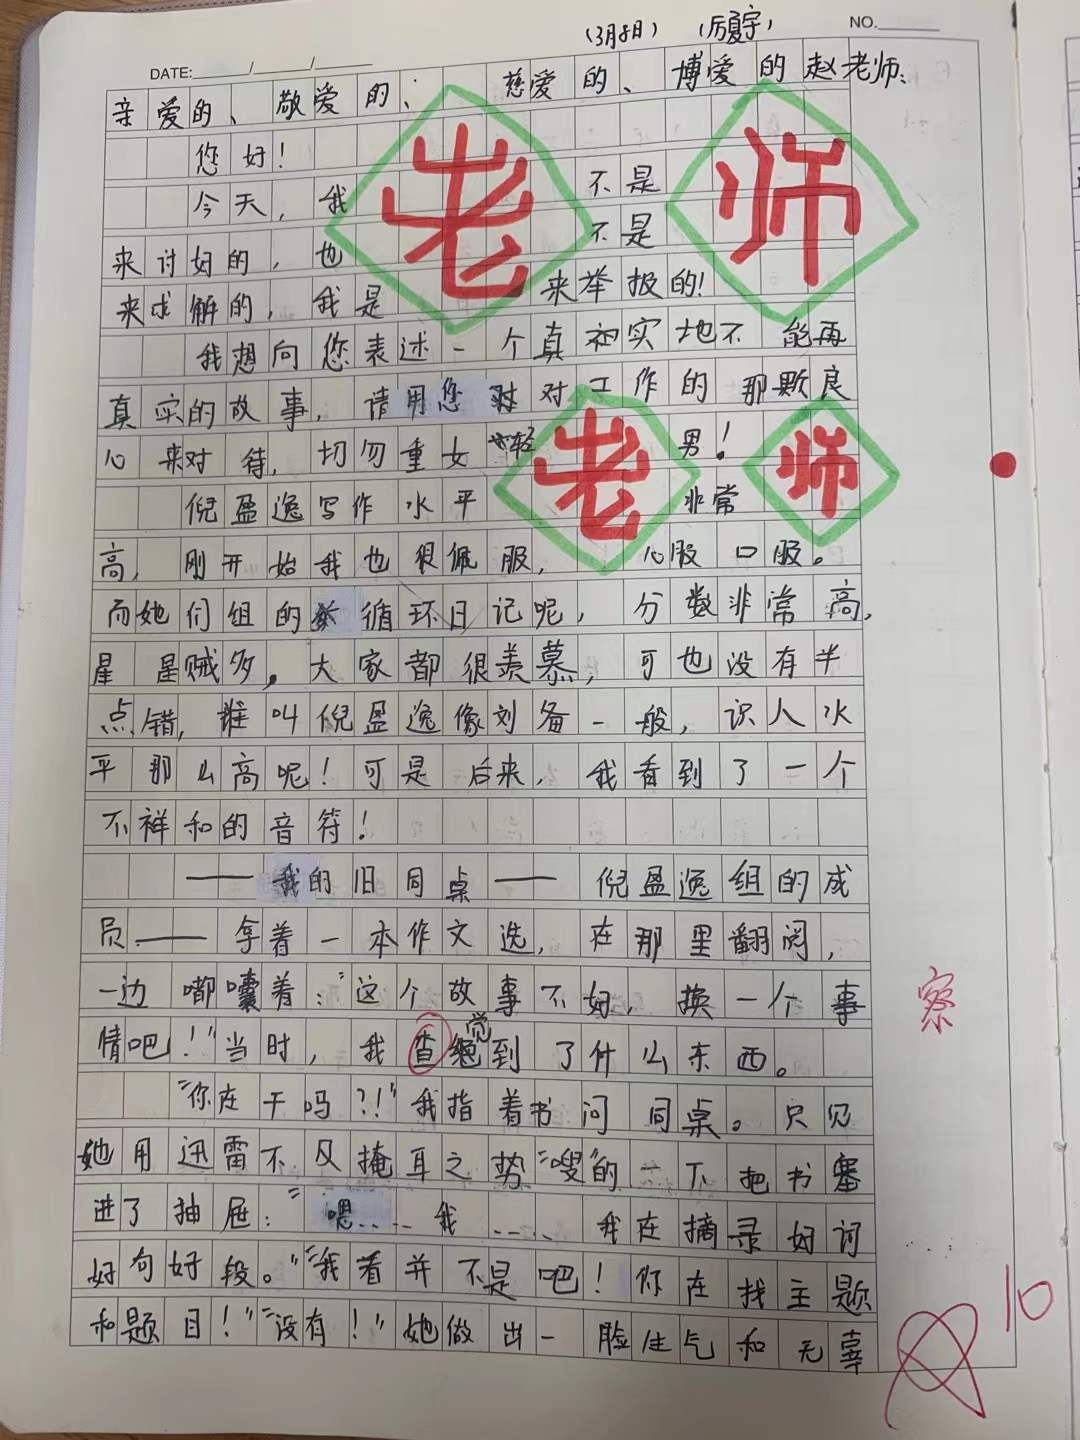 (3月8日) (厉夏宇) NO.
DATE: / /
亲爱的、敬爱的、慈爱的、博爱的赵老师:
您好!
今天,我 老师 不是
来讨好的,也 不是
来求解的,我是 来举报的!
我想向您表述一个真和实地不能再
真实的故事,请用您对对工作的那颗良
心来对待,切勿重女轻 老师 男!
倪盈逸写作水平 非常
高,刚开始我也很佩服,心服口服。
而她们组的循环日记呢,分数非常高,
星星贼多。大家都很羡慕,可也没有半
点错,谁叫倪盈逸像刘备一般,识人水
平那么高呢!可是后来,我看到了一个
不祥和的音符!
——我的旧同桌——倪盈逸组的成
员——拿着一本作文选,在那里翻阅,
一边嘟囔着:“这个故事不好,换一个事 察
情吧!”当时,我查觉到了什么东西。
“你在干吗?!”我指着书问同桌。只见
她用迅雷不及掩耳之势“嗖”的一下把书塞
进了抽屉:“嗯……我……我在摘录好词
好句好段。”“我看并不是吧!你在找主题
和题目!”“没有!”她做出一脸生气和无辜
10